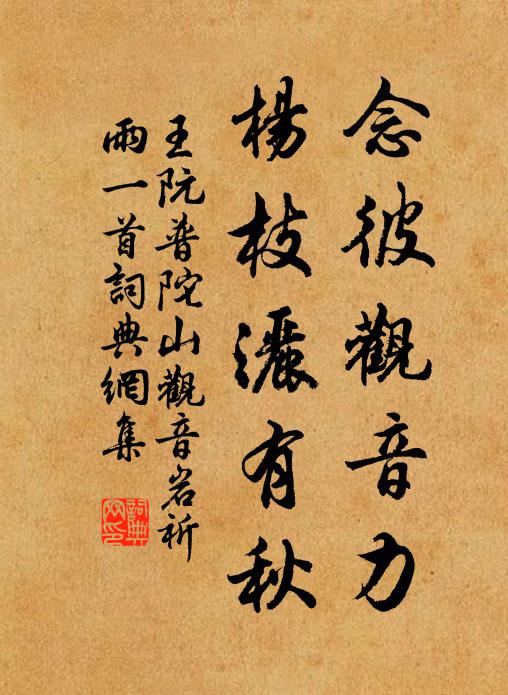 念彼觀音力
楊枝灑有秋
王阮普陀山觀音岩祈
雨一首詞典網集
詞典
网印